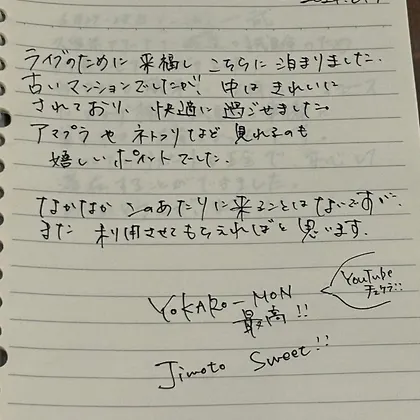 ライブのために来福しこちらに泊まりました。
古いマンションでしたが、中はきれいに
されており、快適に過ごせました。
アマプラやネトフリなど見れるのも
嬉しいポイントでした。
なかなかこのあたりに来ることはないですが、
また利用させてもらえればと思います。
YOKARO-MON
最高!!
YouTube
チェケラ!!
Jimoto Sweet!!